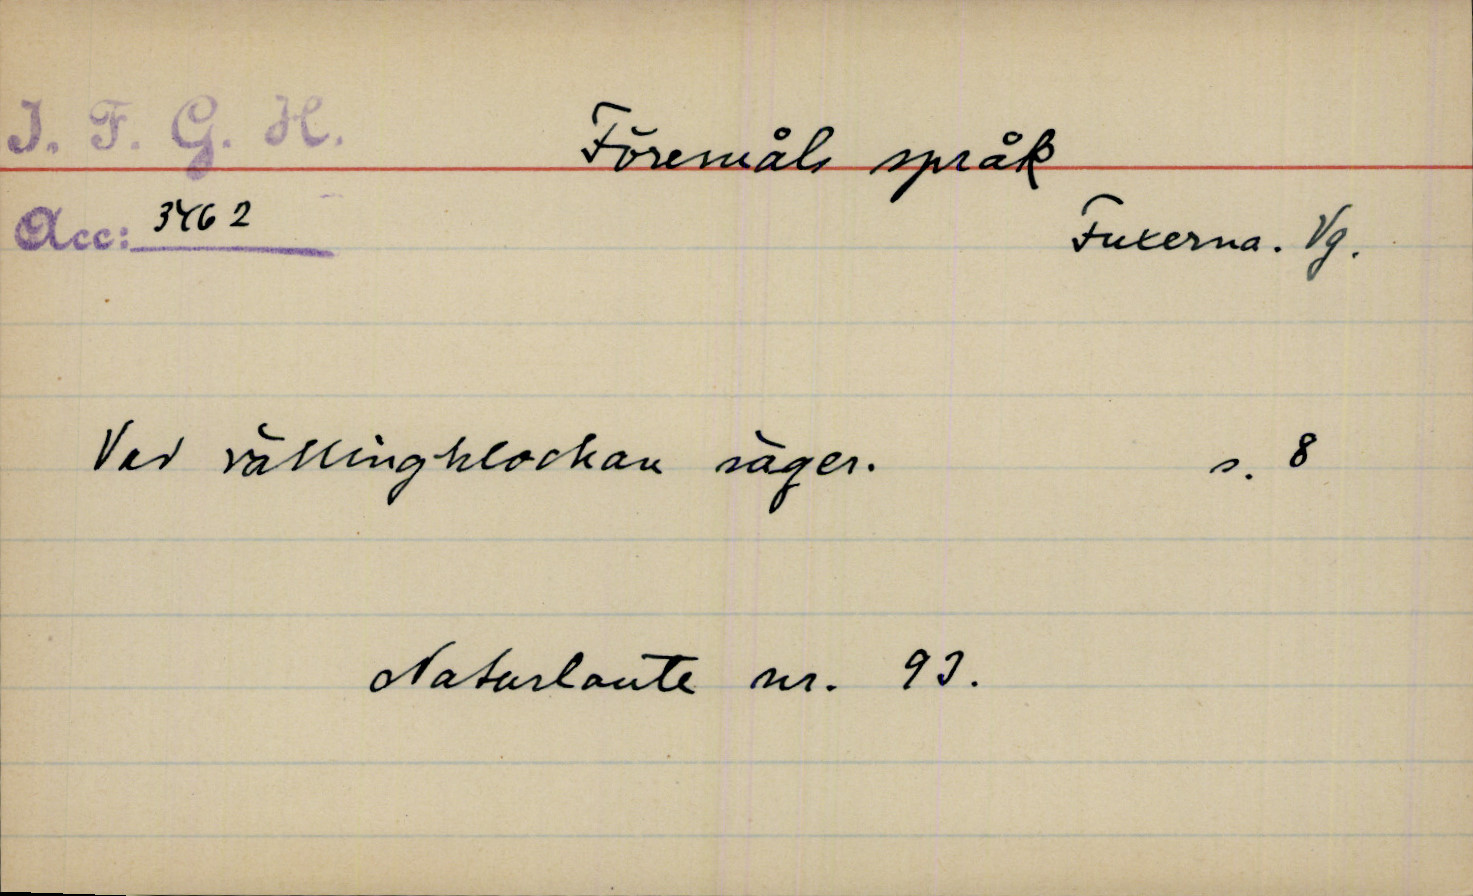 I. F. G. H.
Föremåls språk
Acc: 3462
Fuxerna. Vg.
Vad vällingklockan säger. s. 8
Naturlaute nr. 93.